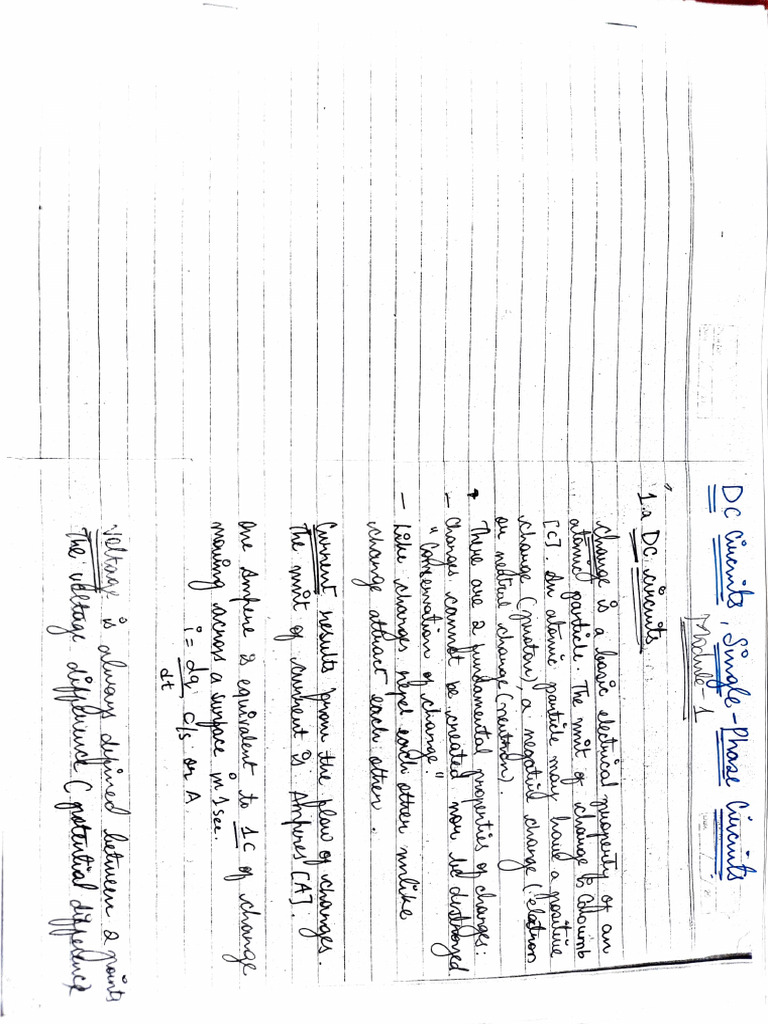 DC Circuits, Single-Phase Circuits
Module-1
1.a DC circuits
Charge is a basic electrical property of an
atomic particle. The unit of charge is Coloumb
[C]. An atomic particle may have a positive
charge (proton), a negative charge (electron
or neutral charge (neutron).
There are 2 fundamental properties of charges:
- Charges cannot be created nor be destroyed
"Conservation of charge."
- Like charges repel each other unlike
charge attract each other.
Current results from the flow of charges.
The unit of current is Amperes [A].
One Ampere is equivalent to 1C of charge
moving across a surface in 1 sec.
i = dq/dt C/s or A
Voltage is always defined between 2 points
The voltage difference (potential difference)